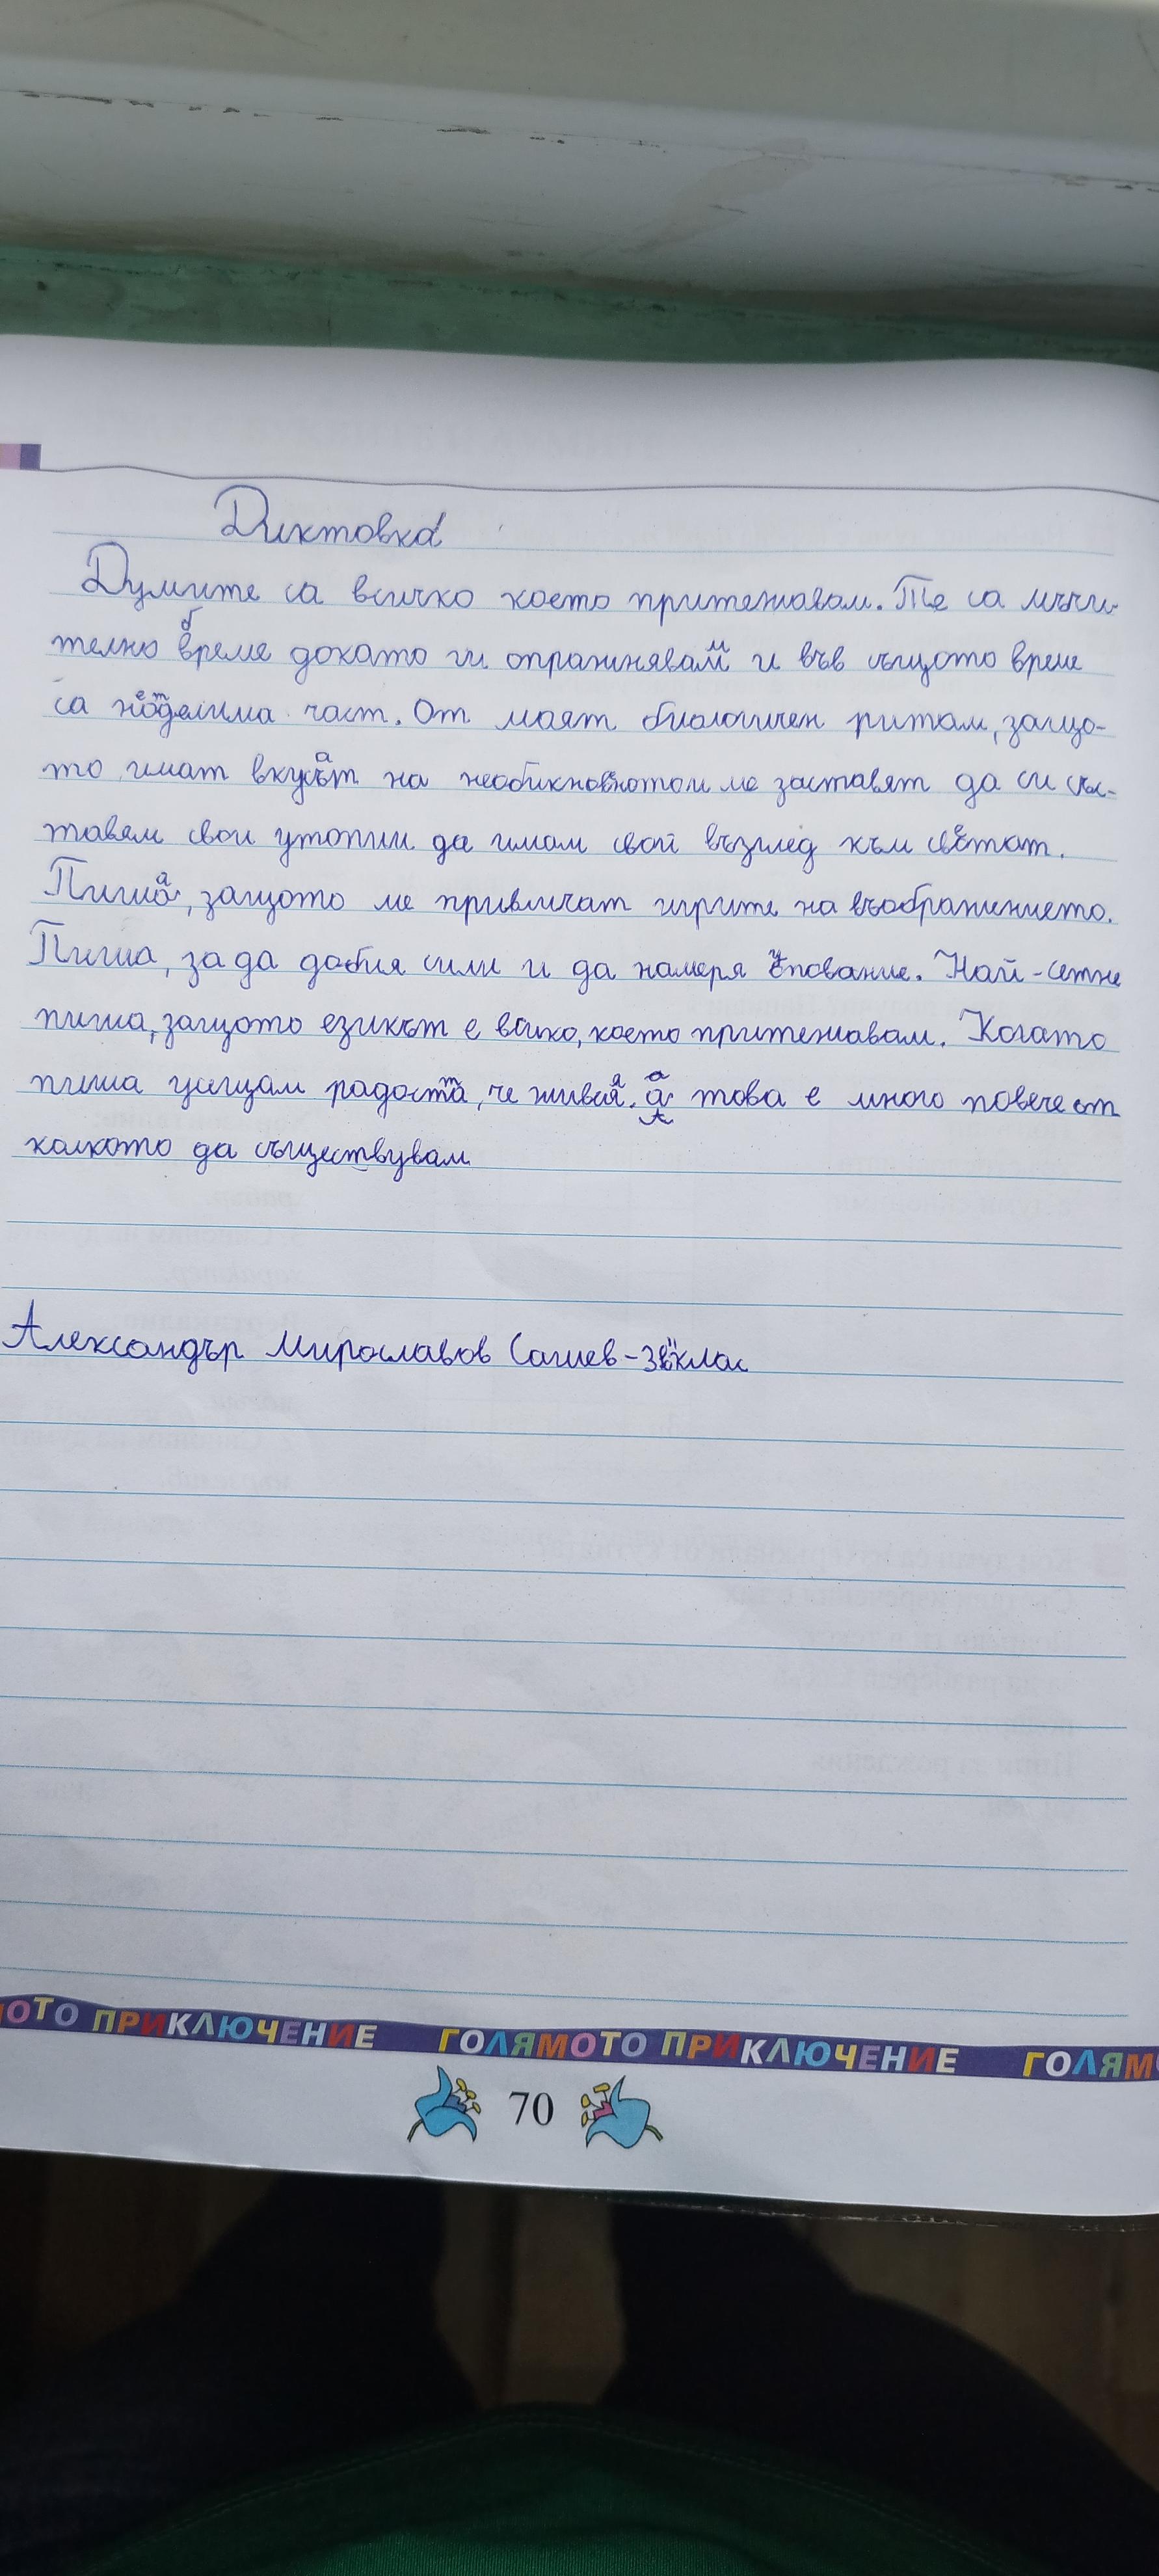 Диктовка
Думите са всичко което притежавам. Те са мъчи-
телно бреме докато ги опразнявам и във същото време
са неотделима част. От моят биологичен ритам, защо-
то имат вкусът на необикновнотом ме заставят да си със-
тавям свои утопии да имам свой възглед към светът.
Пиша, защото ме привличат игрите на въображинието.
Пиша, за да добия сили и да намеря упование. Най-сетне
пиша, защото езикът е всико, което притежавам. Когато
пиша усещам радостта, че живея, а това е много повече от
колкото да съществувам
Александър Мирославов Сашев-3 клас
ОТО ПРИКЛЮЧЕНИЕ ГОЛЯМОТО ПРИКЛЮЧЕНИЕ ГОЛЯМ
70